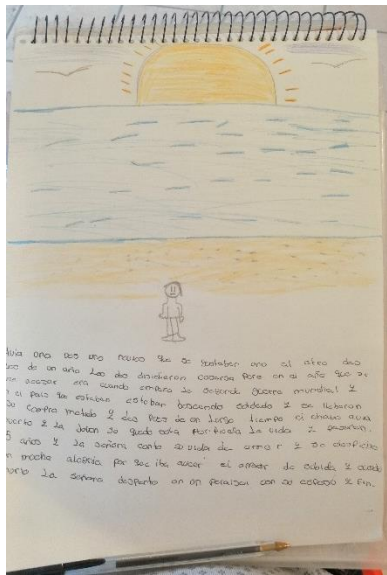 una vez uno novios que se gustaban uno al otro des
de un año Los dos decidieron casarse pero en el año que se
casar era cuando empieza la segunda guerra mundial y
el país que estaban estaban buscando soldado y se llebaron
su metido y des de un largo tiempo el chavo avia
muerto y la joven se quedo sola por toda la vida y pasaron
5 años y la señora conto su vida de amor y se despidio
mucho alegria por que iba aser el amor de su vida y cuando
La señora desperto en un paraiso con su esposo y Fin.